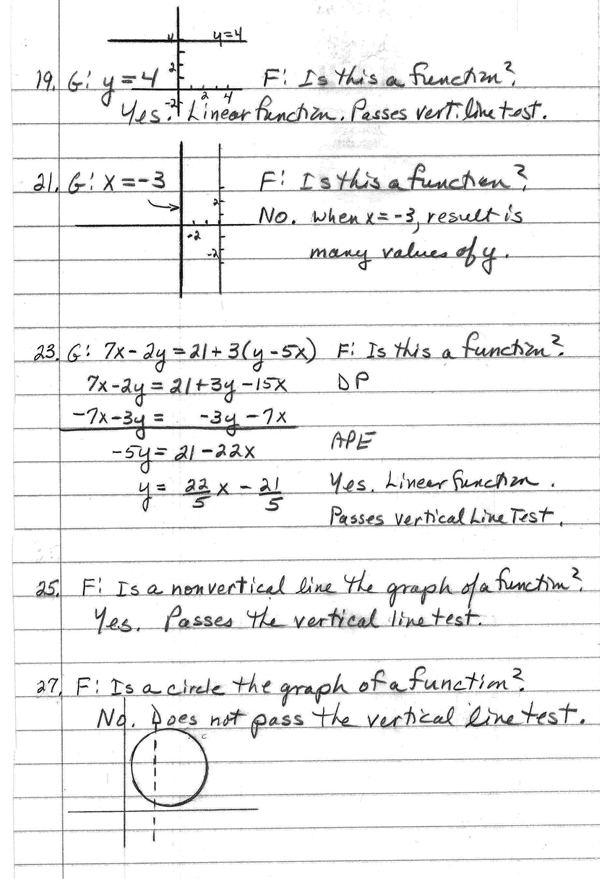 4 y=4
19. G: y=4 2 F: Is this a function?
2 4
-2
Yes. Linear function. Passes vert. line test.
21. G: x=-3 F: Is this a function?
2
No. when x=-3, result is
-2
-2 many values of y.
23. G: 7x-2y=21+3(y-5x) F: Is this a function?
7x-2y=21+3y-15x DP
-7x-3y= -3y-7x
-5y=21-22x APE
y= 22/5 x - 21/5 Yes. Linear function.
Passes vertical Line Test.
25. F: Is a nonvertical line the graph of a function?
Yes. Passes the vertical line test.
27. F: Is a circle the graph of a function?
No. Does not pass the vertical line test.